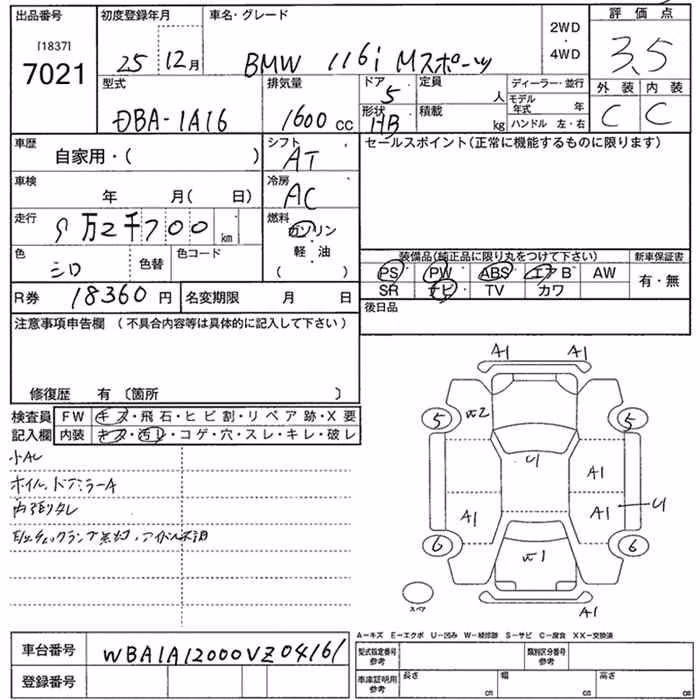 出品番号
[1837]
7021
初度登録年月
25 12月
車名・グレード
BMW 116i Mスポーツ
2WD
・
4WD
評価点
3.5
外装 内装
C C
型式
DBA-1A16
排気量
1600 cc
ドア
5
形状
HB
定員
人
積載
kg
ディーラー・並行
モデル年式 年
ハンドル 左・右
車歴
自家用・( )
シフト
AT
セールスポイント(正常に機能するものに限ります)
車検
年 月( 日)
冷房
AC
走行
9万2千700 km
燃料
ガソリン
・
軽油
( )
色
シロ
色替
色コード
装備品(純正品に限り丸をつけて下さい)
新車保証書
PS PW ABS エアB AW
有・無
SR ナビ TV カワ
R券 18360円
名変期限 月 日
後日品
注意事項申告欄 (不具合内容等は具体的に記入して下さい)
修復歴 有〔箇所 〕
検査員
記入欄
FW キズ・飛石・ヒビ割・リペア跡・X要
内装 キズ・汚レ・コゲ・穴・スレ・キレ・破レ
小AU
ホイル、ドアミラーA
内張りタレ
E/gチェックランプ点灯、アイドル不調
A1 A1
5 5
W2
U1
A1
A1
A1 U1
6 6
W1
スペア
A1
A−キズ E−エクボ U−凹み W−補修跡 S−サビ C−腐食 XX−交換済
車台番号
WBA1A12000VZ04161
登録番号
型式指定番号
参考
類別区分番号
参考
車庫証明用
参考
長さ cm
幅 cm
高さ cm